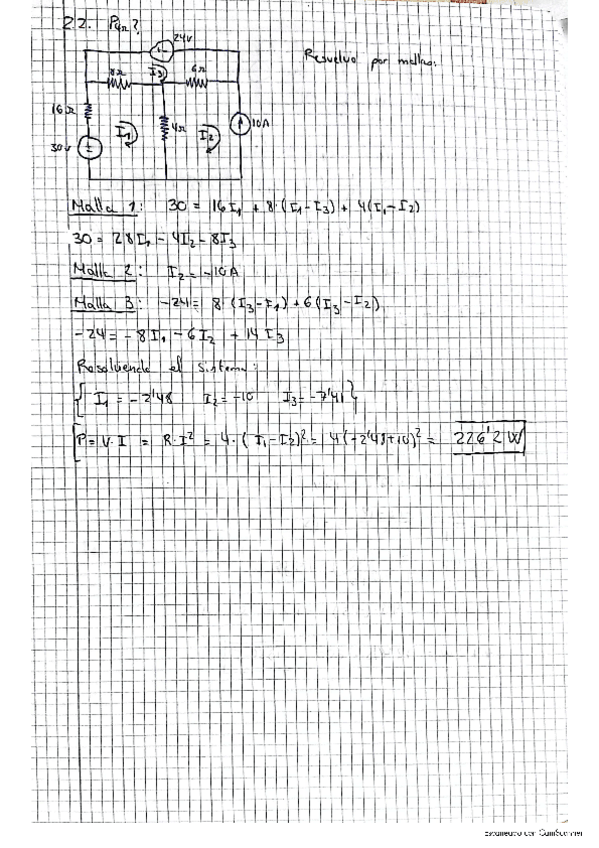 22. P4Ω?
24V
Resuelvo por mallas:
8Ω I3 6Ω
16Ω I1 4Ω I2 10A
30V
Malla 1: 30 = 16I1 + 8·(I1-I3) + 4(I1-I2)
30 = 28I1 - 4I2 - 8I3
Malla 2: I2 = -10A
Malla 3: -24 = 8·(I3-I1) + 6(I3-I2)
-24 = -8I1 - 6I2 + 14I3
Resolviendo el sistema:
{ I1 = -2'48 I2 = -10 I3 = -7'41 }
[P = V·I = R·I² = 4·(I1-I2)² = 4(-2'48+10)² = 226'2 W
Escaneado con CamScanner